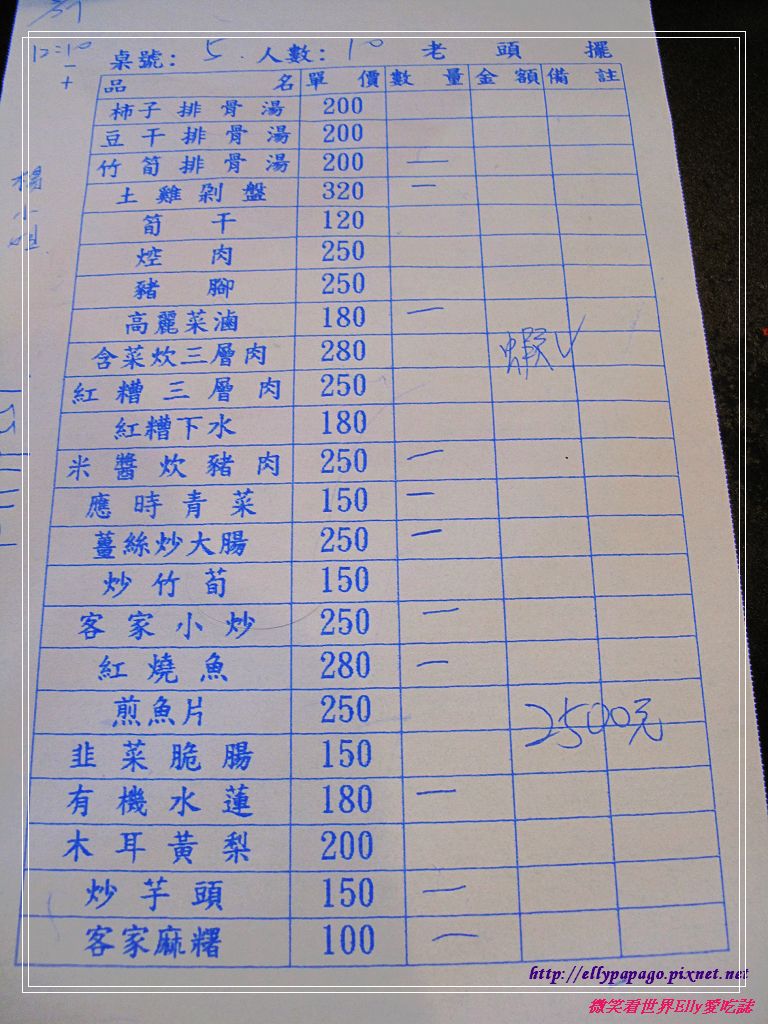 12:10
桌號: 5 人數: 10 老頭擺
品名 單價 數量 金額 備註
柿子排骨湯 200
豆干排骨湯 200
竹筍排骨湯 200 一
土雞剁盤 320 一
筍干 120
焢肉 250
豬腳 250
高麗菜滷 180 一
含菜炊三層肉 280 蝦✓
紅糟三層肉 250
紅糟下水 180
米醬炊豬肉 250 一
應時青菜 150 一
薑絲炒大腸 250 一
炒竹荀 150
客家小炒 250 一
紅燒魚 280 一
煎魚片 250 2500元
韭菜脆腸 150
有機水蓮 180 一
木耳黃梨 200
炒芋頭 150 一
客家麻糬 100 一
楊小姐
http://ellypapago.pixnet.net
微笑看世界Elly愛吃誌